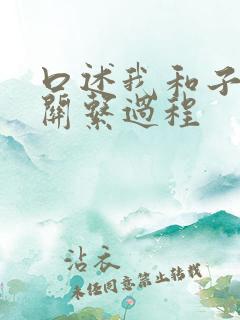 口述我和子
關繫過程
沾衣
未经同意禁止转载